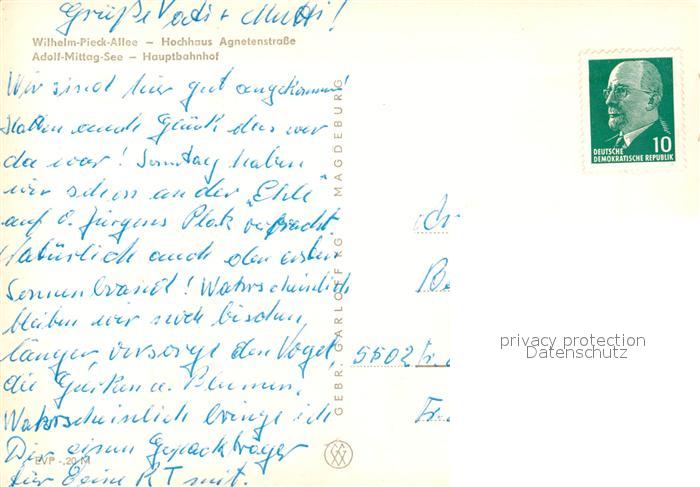 Grüße Vati + Mutti!
Wilhelm-Pieck-Allee – Hochhaus Agnetenstraße
Adolf-Mittag-See – Hauptbahnhof
Wir sind hier gut angekommen!
Hatten auch Glück das wer
da war! Sonntag haben
wir schon an der „Ehle"
auf O. Jürgens Platz verbracht.
Natürlich auch den ersten
Sonnenbrand! Wahrscheinlich
bleiben wir noch bischen
länger, versorge den Vogel,
die Gurken u. Blumen,
Wahrscheinlich bringe ich
Dir einen Gepäckträger
für Deine RT mit.
EVP -.20 M
GEBR. GARLOFF KG MAGDEBURG
10
DEUTSCHE
DEMOKRATISCHE REPUBLIK
5502
privacy protection
Datenschutz